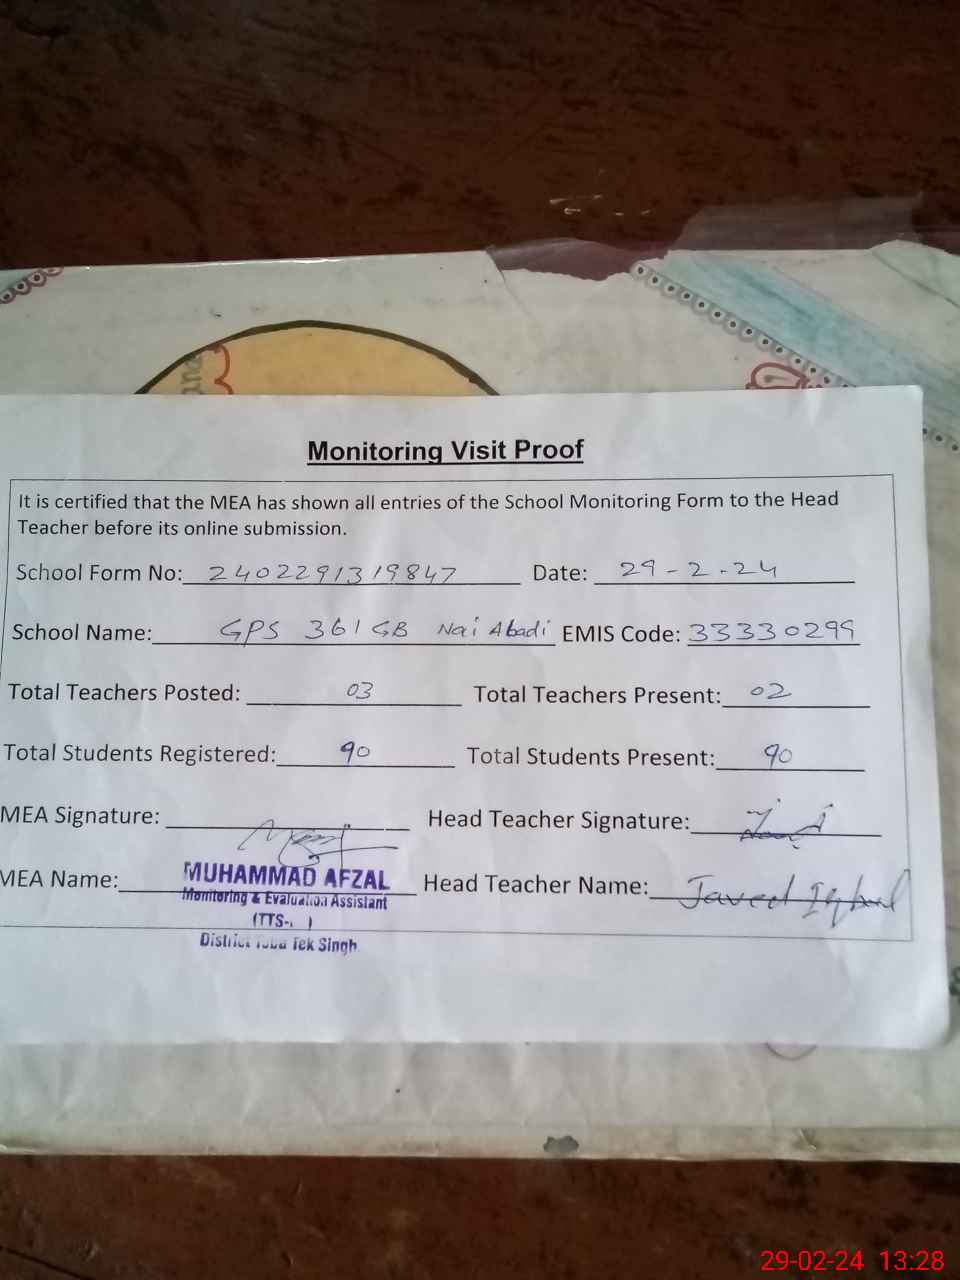 Monitoring Visit Proof
It is certified that the MEA has shown all entries of the School Monitoring Form to the Head
Teacher before its online submission.
School Form No: 2402291319847 Date: 29-2-24
School Name: GPS 361 GB Nai Abadi EMIS Code: 33330299
Total Teachers Posted: 03 Total Teachers Present: 02
Total Students Registered: 90 Total Students Present: 90
MEA Signature: Head Teacher Signature:
MEA Name: MUHAMMAD AFZAL Head Teacher Name: Javed Iqbal
Monitoring & Evaluation Assistant
(TTS- )
District Toba Tek Singh
29-02-24 13:28